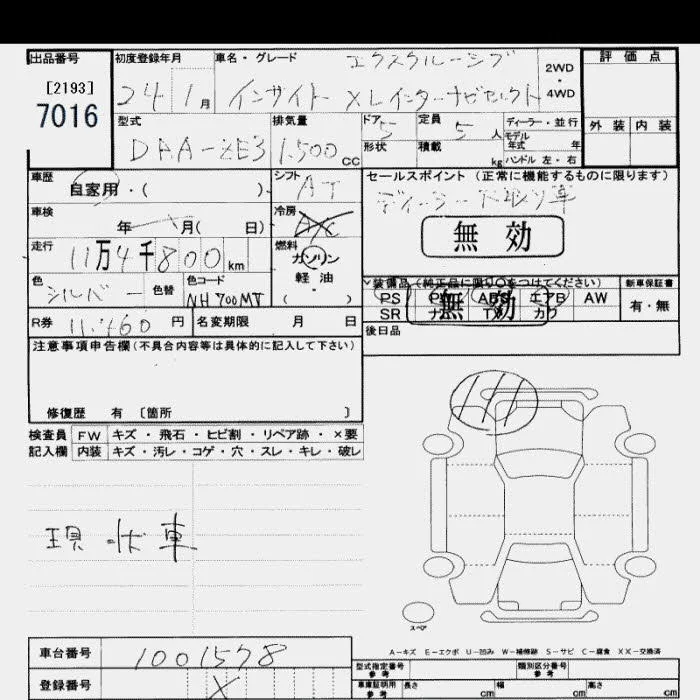 出品番号 初度登録年月 車名・グレード エクスクルーシブ 2WD・4WD 評価点
[2193]
7016
24年 1月 インサイト XLインターナビセレクト
型式 排気量 ドア 5 定員 5人 ディーラー・並行
モデル年式 年
外装 内装
DAA-ZE3 1,500cc 形状 積載 kg ハンドル 左・右
車歴 シフト AT セールスポイント (正常に機能するものに限ります)
自家用・( ) ディーラー下取り車
車検 冷房 A/C
年 月( 日) 無効
走行 燃料
11万4千800km ガソリン
軽油
・
( )
色 シルバー 色替 色コード NH700MT
装備品 (純正品に限り○をつけてください) 新車保証書
PS PW ABS エアB AW 有・無
無効
SR ナビ TV カワ
R券 11,460円 名変期限 月 日 後日品
注意事項申告欄(不具合内容等は具体的に記入して下さい)
修復歴 有 〔箇所 〕
検査員 FW キズ・飛石・ヒビ割・リペア跡・×要
記入欄 内装 キズ・汚レ・コゲ・穴・スレ・キレ・破レ
現状車
スペア
A-キズ E-エクボ U-凹み W-補修跡 S-サビ C-腐食 XX-交換済
車台番号 1001578
型式指定番号 参考 類別区分番号 参考
登録番号 X
車庫証明用 参考 長さ cm 幅 cm 高さ cm